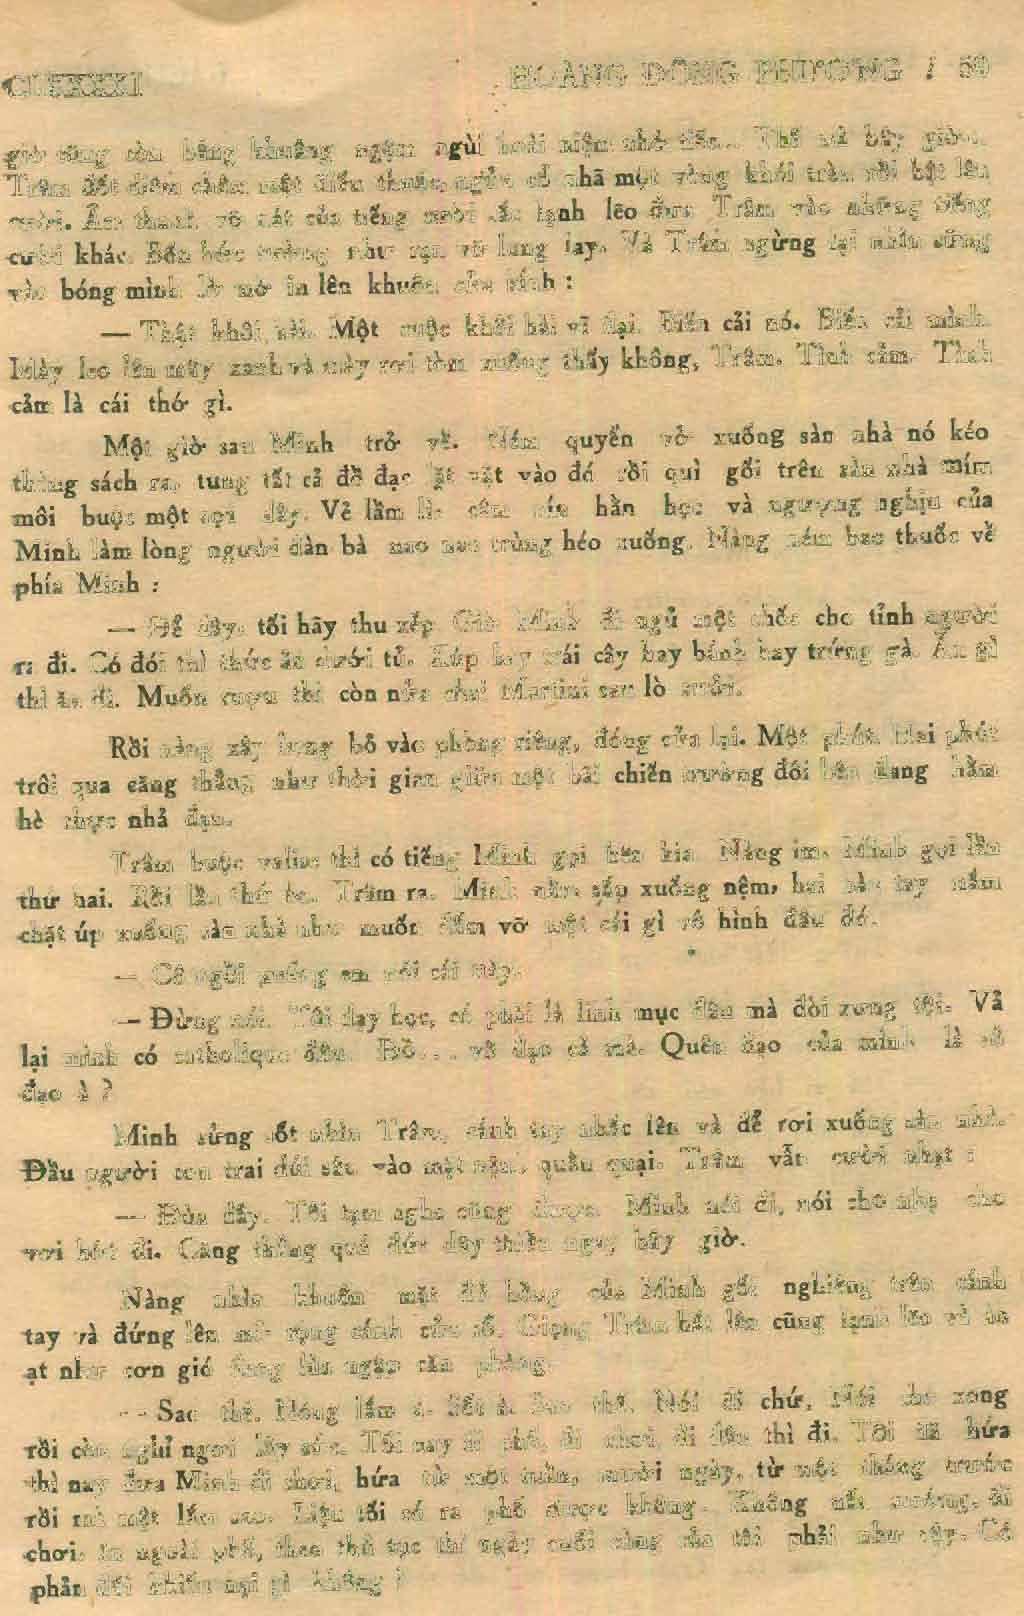 HOÀNG ĐÔNG PHƯƠNG / 59
giờ cũng còn bâng khuâng ngậm ngùi hoài niệm nhớ tiếc... Thế mà bây giờ...
Trâm đốt diêm châm một điếu thuốc, ngửa cổ nhã một vòng khói tròn rồi bật lên
cười. Âm thanh vỡ nát của tiếng cười lạnh lẽo đưa Trâm vào những tiếng
cười khác. Bốn bức tường như rạn vỡ lung lay. Và Trâm ngừng lại nhìn sững
vào bóng mình lờ mờ in lên khuôn cửa kính :
— Thật khôi hài. Một cuộc khôi hài vĩ đại. Biến cải nó. Biến cải mình.
Mày leo lên mây xanh và mày rơi tòm xuống thấy không, Trâm. Tình cảm. Tình
cảm là cái thớ gì.
Một giờ sau Minh trở về. Ném quyển vở xuống sàn nhà nó kéo
thùng sách ra, tung tất cả đồ đạc lặt vặt vào đó rồi quì gối trên sàn nhà mím
môi buộc một sợi dây. Vẻ lầm lì câm nín hằn học và ngượng nghịu của
Minh làm lòng người đàn bà nao nao trùng héo xuống. Nàng ném bao thuốc về
phía Minh :
— Để đấy, tối hãy thu xếp. Giờ Minh đi ngủ một chốc cho tỉnh người
ra đi. Có đói thì thức ăn dưới tủ. Xúp hay trái cây hay bánh hay trứng gà. Ăn gì
thì ăn đi. Muốn rượu thì còn nửa chai Martini sau lò sưởi.
Rồi nàng xây lưng bỏ vào phòng riêng, đóng cửa lại. Một phút. Hai phút
trôi qua căng thẳng như thời gian giữa một bãi chiến trường đôi bên đang hằm
hè chực nhả đạn.
Trâm buộc valise thì có tiếng Minh gọi bên kia. Nàng im. Minh gọi lần
thứ hai. Rồi lần thứ ba. Trâm ra. Minh nằm sấp xuống nệm, hai bàn tay nắm
chặt úp xuống sàn nhà như muốn đấm vỡ một cái gì vô hình đâu đó.
— Cô ngồi xuống em nói cái này.
— Đừng nói. Tôi dạy học, có phải là linh mục đâu mà đòi xưng tội. Vả
lại mình có catholique đâu. Đồ... vô đạo cả mà. Quên đạo của mình là vô
đạo à ?
Minh sửng sốt nhìn Trâm, cánh tay nhấc lên và để rơi xuống sàn nhà.
Đầu người con trai dúi sâu vào mặt nệm, quằn quại. Trâm vẫn cười nhạt :
— Đùa đấy. Tôi tạm nghe cũng được. Minh nói đi, nói cho nhẹ cho
vơi bớt đi. Căng thẳng quá đứt dây thiều ngay bây giờ.
Nàng nhìn khuôn mặt đỏ hồng của Minh gối nghiêng trên cánh
tay và đứng lên mở rộng cánh cửa sổ. Giọng Trâm hắt lên cũng lạnh lẽo và ào
ạt như cơn gió đang lùa ngập căn phòng.
— Sao thế. Nóng lắm à. Sốt à. Sao thế. Nói đi chứ. Nói cho xong
rồi còn nghỉ ngơi lấy sức. Tối nay đi phố, đi chơi, đi đâu thì đi. Tôi đã hứa
thì nay đưa Minh đi chơi, hứa từ một tuần, mười ngày, từ một tháng trước
rồi mà một lần sao. Liệu tối có ra phố được không. Không nấu nướng, đi
chơi, ăn ngoài phố, theo thủ tục thì ngày cuối cùng của tôi phải như vậy. Có
phản đối khiếu nại gì không ?